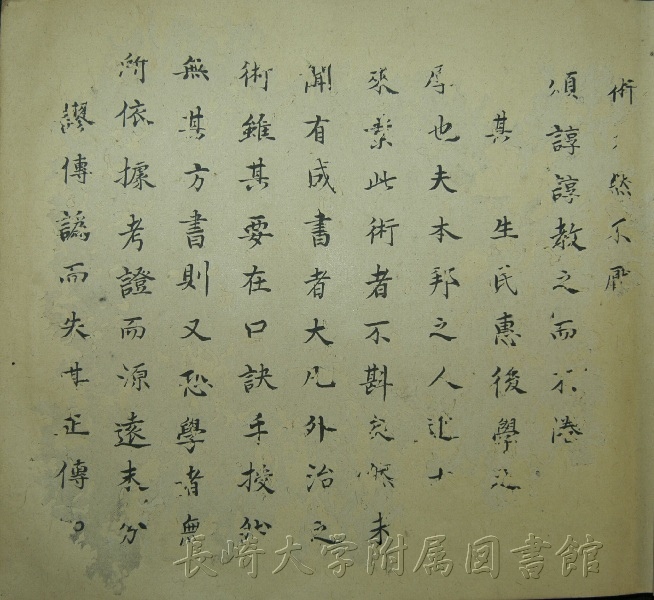 術 然不
頌諄諄教之而不倦
其 生民惠後學之
厚也夫本邦之人近 
來業此術者不斟 然未
聞有成書者大凡外治之
術雖其要在口訣手授然
無其方書則又恐學者無
所依據考證而源遠末分
謬傳譌而失其正傳
長崎大学附属図書館